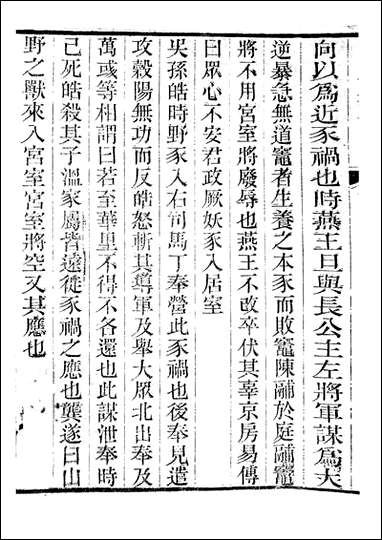 向以爲近豕禍也時燕王旦與長公主左將軍謀爲大
逆暴急無道竈者生養之本豕而敗竈陳鬴於庭鬴竈
將不用宮室將廢辱也燕王不改卒伏其辜京房易傳
曰眾心不安君政厥妖豕入居室
吳孫皓時野豕入右司馬丁奉營此豕禍也後奉見遣
攻穀陽無功而反皓怒斬其導軍及舉大眾北出奉及
萬彧等相謂曰若至華里不得不各還也此謀泄奉時
已死皓殺其子溫家屬皆遠徙豕禍之應也龔遂曰山
野之獸來入宮室宮室將空又其應也